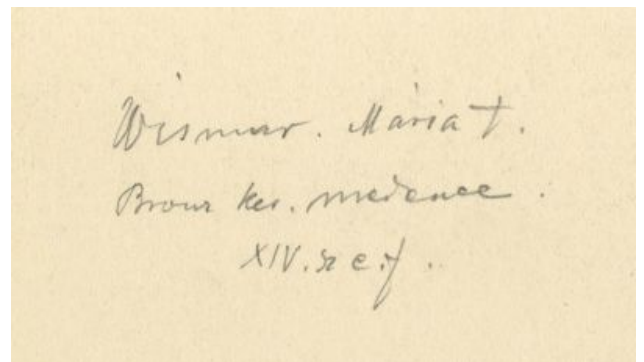 Wismar. Mária t.
Bronz ker. medence.
XIV. sz e.f.